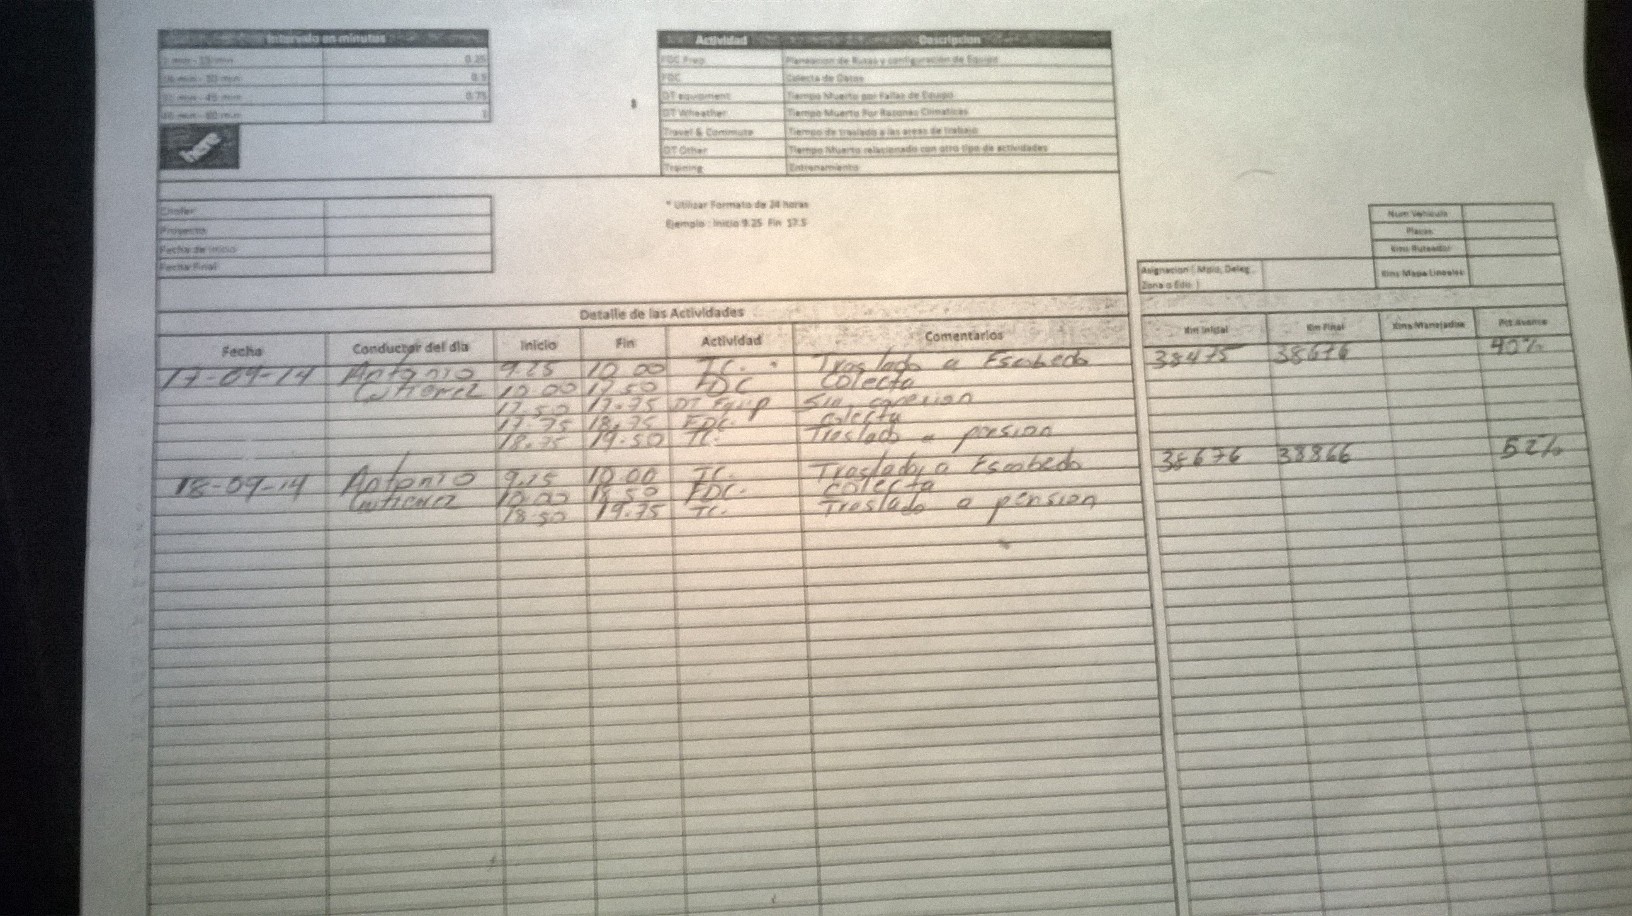 Intervalo en minutos
1 min - 15 min 0.25
16 min - 30 min 0.5
31 min - 45 min 0.75
46 min - 60 min 1
here
Actividad Descripcion
FDC Prep Planeacion de Rutas y configuración de Equipo
FDC Colecta de Datos
DT equipment Tiempo Muerto por Fallas de Equipo
DT Wheather Tiempo Muerto Por Razones Climaticas
Travel & Commute Tiempo de traslado a las areas de trabajo
DT Other Tiempo Muerto relacionado con otro tipo de actividades
Training Entrenamiento
Chofer
Proyecto
Fecha de Inicio
Fecha Final
* Utilizar Formato de 24 horas
Ejemplo : Inicio 9.25 Fin 17.5
Num Vehiculo
Placas
Kms Ruteador
Asignacion ( Mpio, Deleg, Kms Mapa Lineales
Zona o Edo )
Detalle de las Actividades
Fecha Conductor del día Inicio Fin Actividad Comentarios Km Inicial Km Final Kms Manejados Pct Avance
17-09-14 Antonio 9.25 10.00 TC. Traslado a Escobedo 38475 38676 40%
Gutierrez 10.00 17.50 FDC Colecta
17.50 17.75 DT Equip Sin conexion
17.75 18.75 FDC. Colecta
18.75 19.50 TC. Traslado a pension
18-09-14 Antonio 9.25 10.00 TC. Traslado a Escobedo 38676 38866 52%
Gutierrez 10.00 18.50 FDC. Colecta
18.50 19.75 TC. Traslado a pension